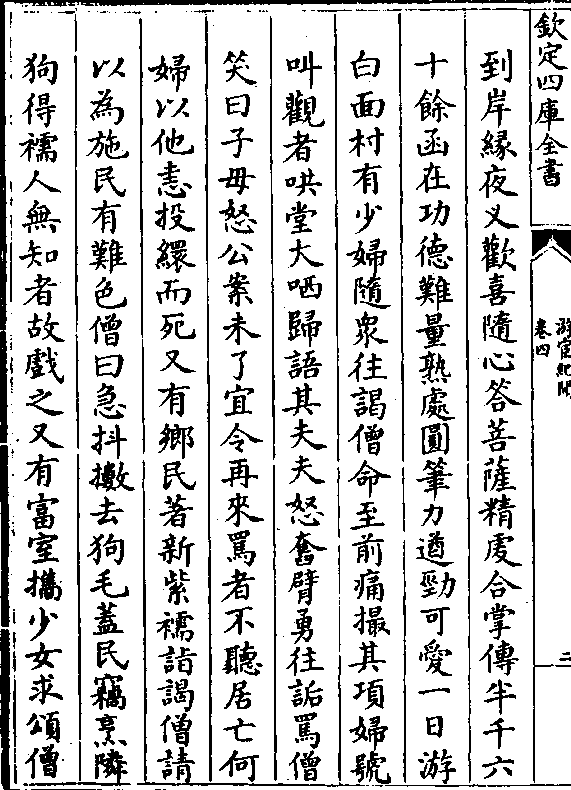 欽定四庫全書
游宦紀聞
卷四
二
到岸縁夜叉歡喜隨心答菩薩精䖏合掌傳半千六
十餘函在功德難量熟處圓筆力遒勁可愛一日游
白面村有少婦隨衆往謁僧命至前痛撮其項婦號
叫觀者哄堂大哂歸語其夫夫怒奮臂勇往詬罵僧
笑曰子毋怒公案未了宜令再來罵者不聽居亡何
婦以他恚投繯而死又有鄉民著新紫襦詣謁僧請
以為施民有難色僧曰急抖擻去狗毛蓋民竊烹隣
狗得襦人無知者故戲之又有富室攜少女求頌僧